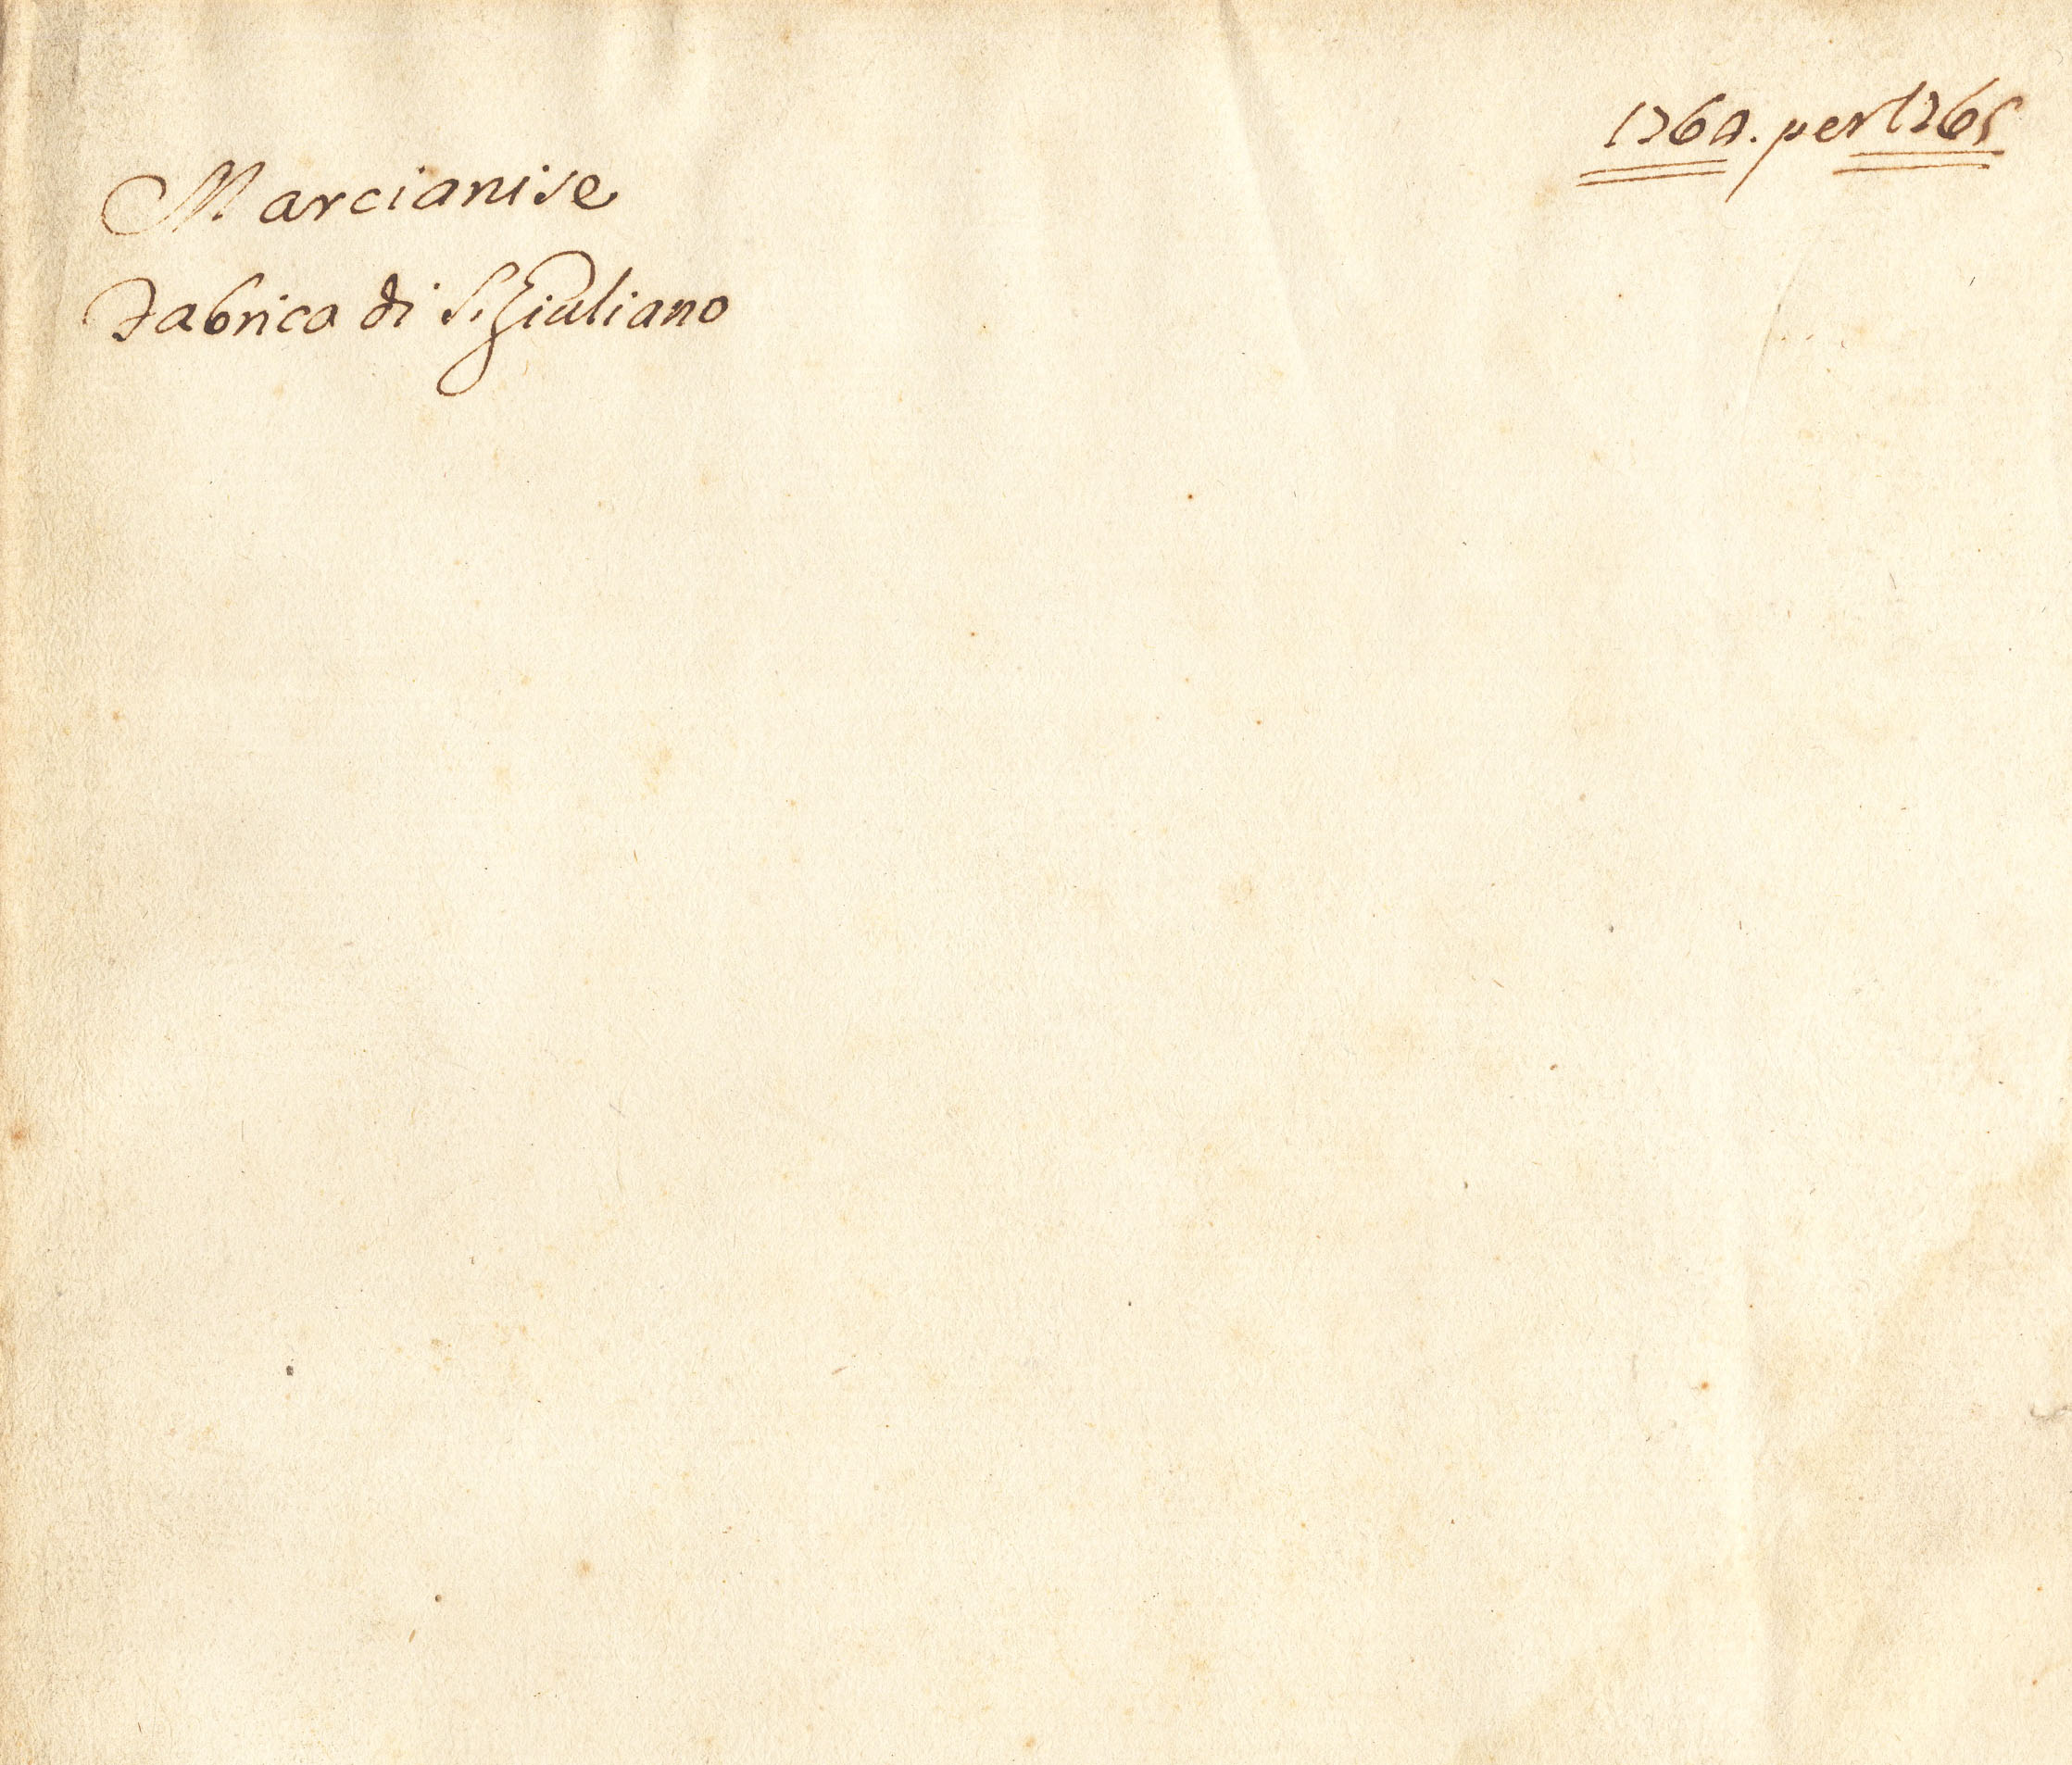 1764. per 1765
Marcianise
Fabrica di S. Giuliano